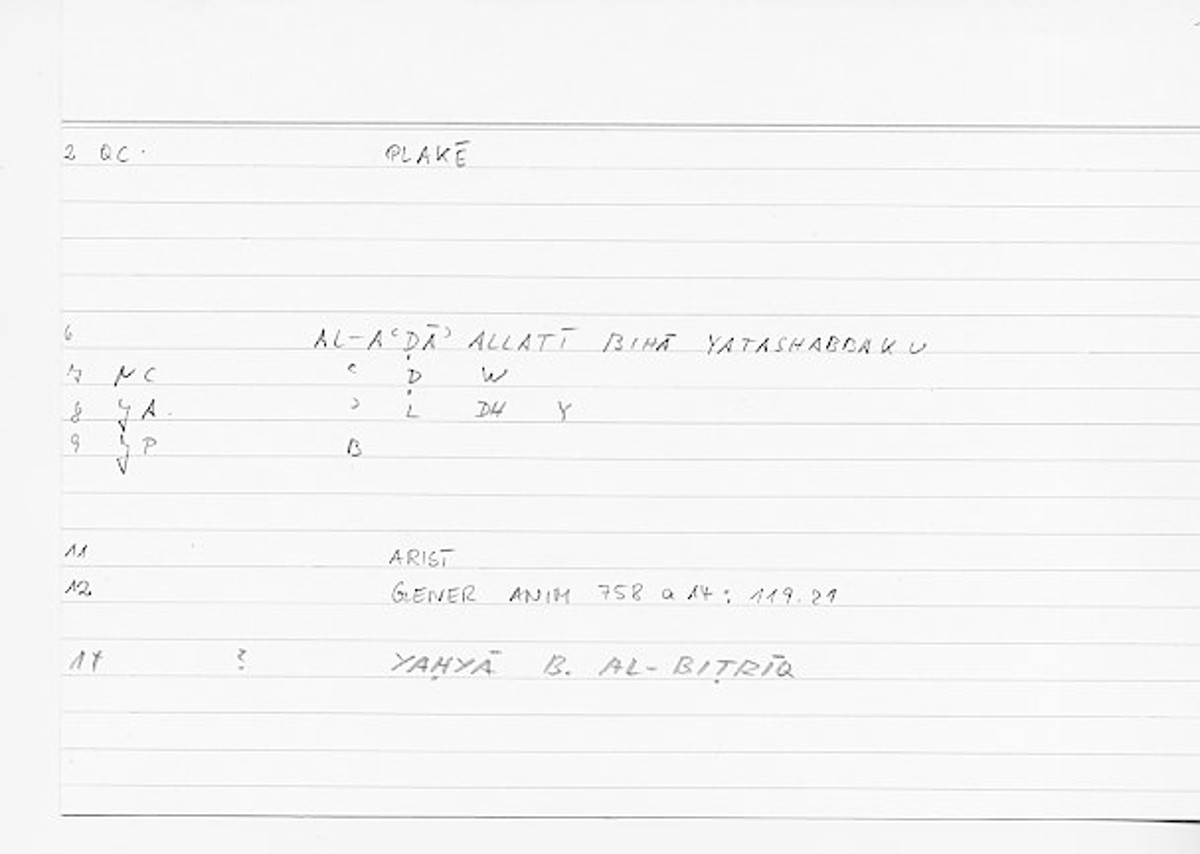 2 QC. PLAKĒ
6 AL-AʿḌĀʾ ALLATĪ BIHĀ YATASHABBAKU
7 NC ʿ Ḍ W
8 JA. ʾ L DH Y
9 JP B
11 ARIST
12 GENER ANIM 758 a 14 : 119.21
14 ? YAḤYĀ B. AL-BIṬRĪQ